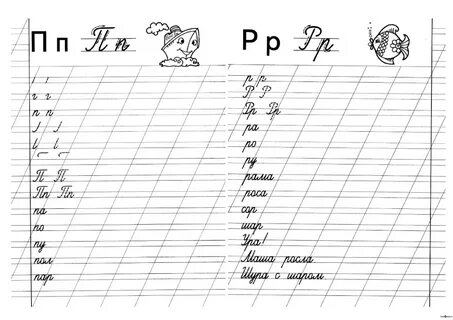 П п П п
г г
п п
П П
Пп Пп
па
по
пу
пол
пар
Р р Р р
р р
Р Р
Рр Рр
ра
ро
ру
рама
роса
сор
шар
Ура!
Маша росла
Шура с шаром